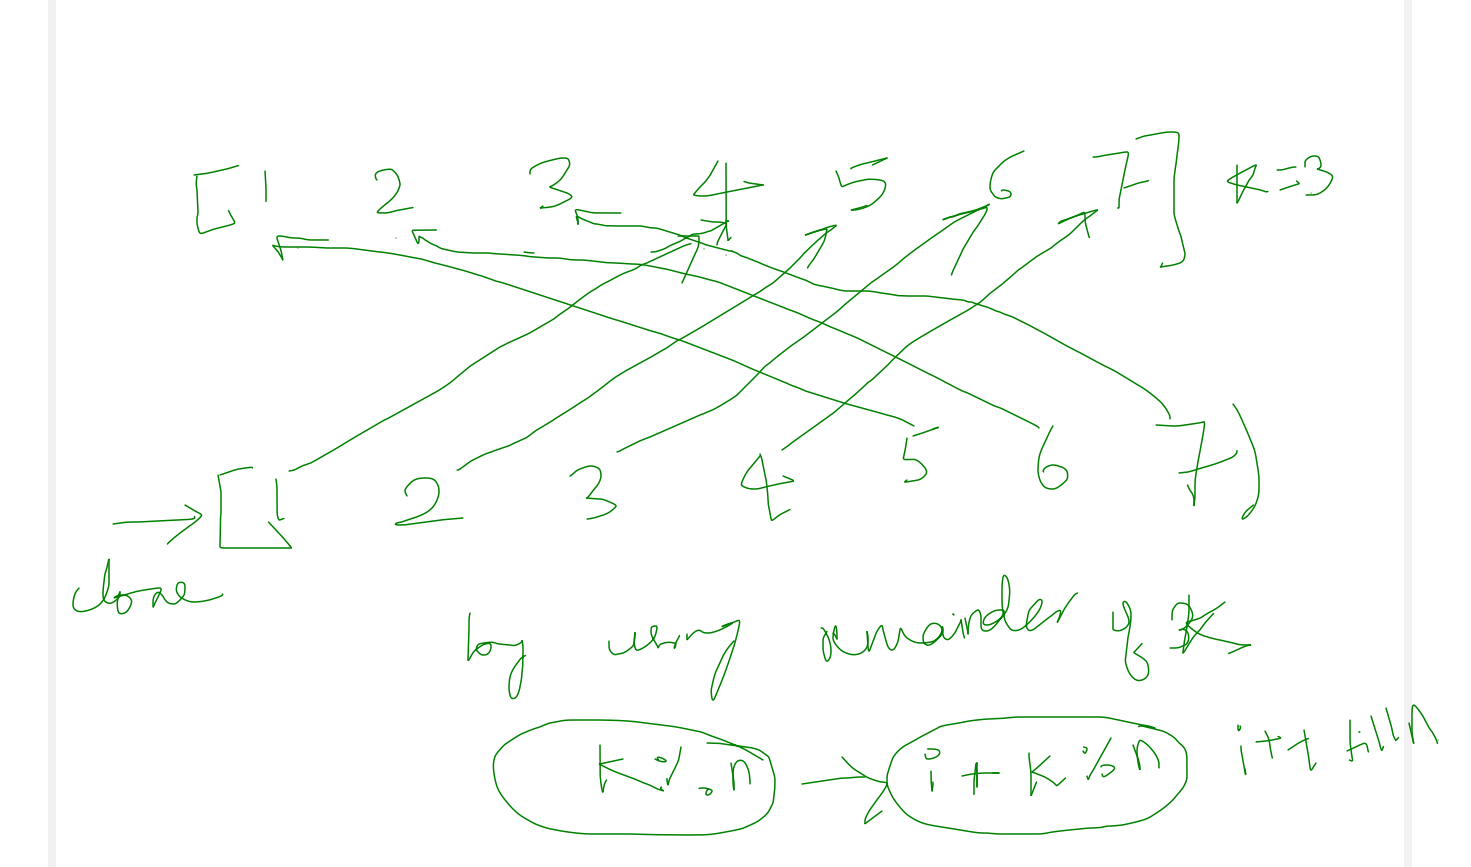 [1 2 3 4 5 6 7] K=3
[1 2 3 4 5 6 7]
clone
by using remainder of K
K%n → i+K%n i++ till n